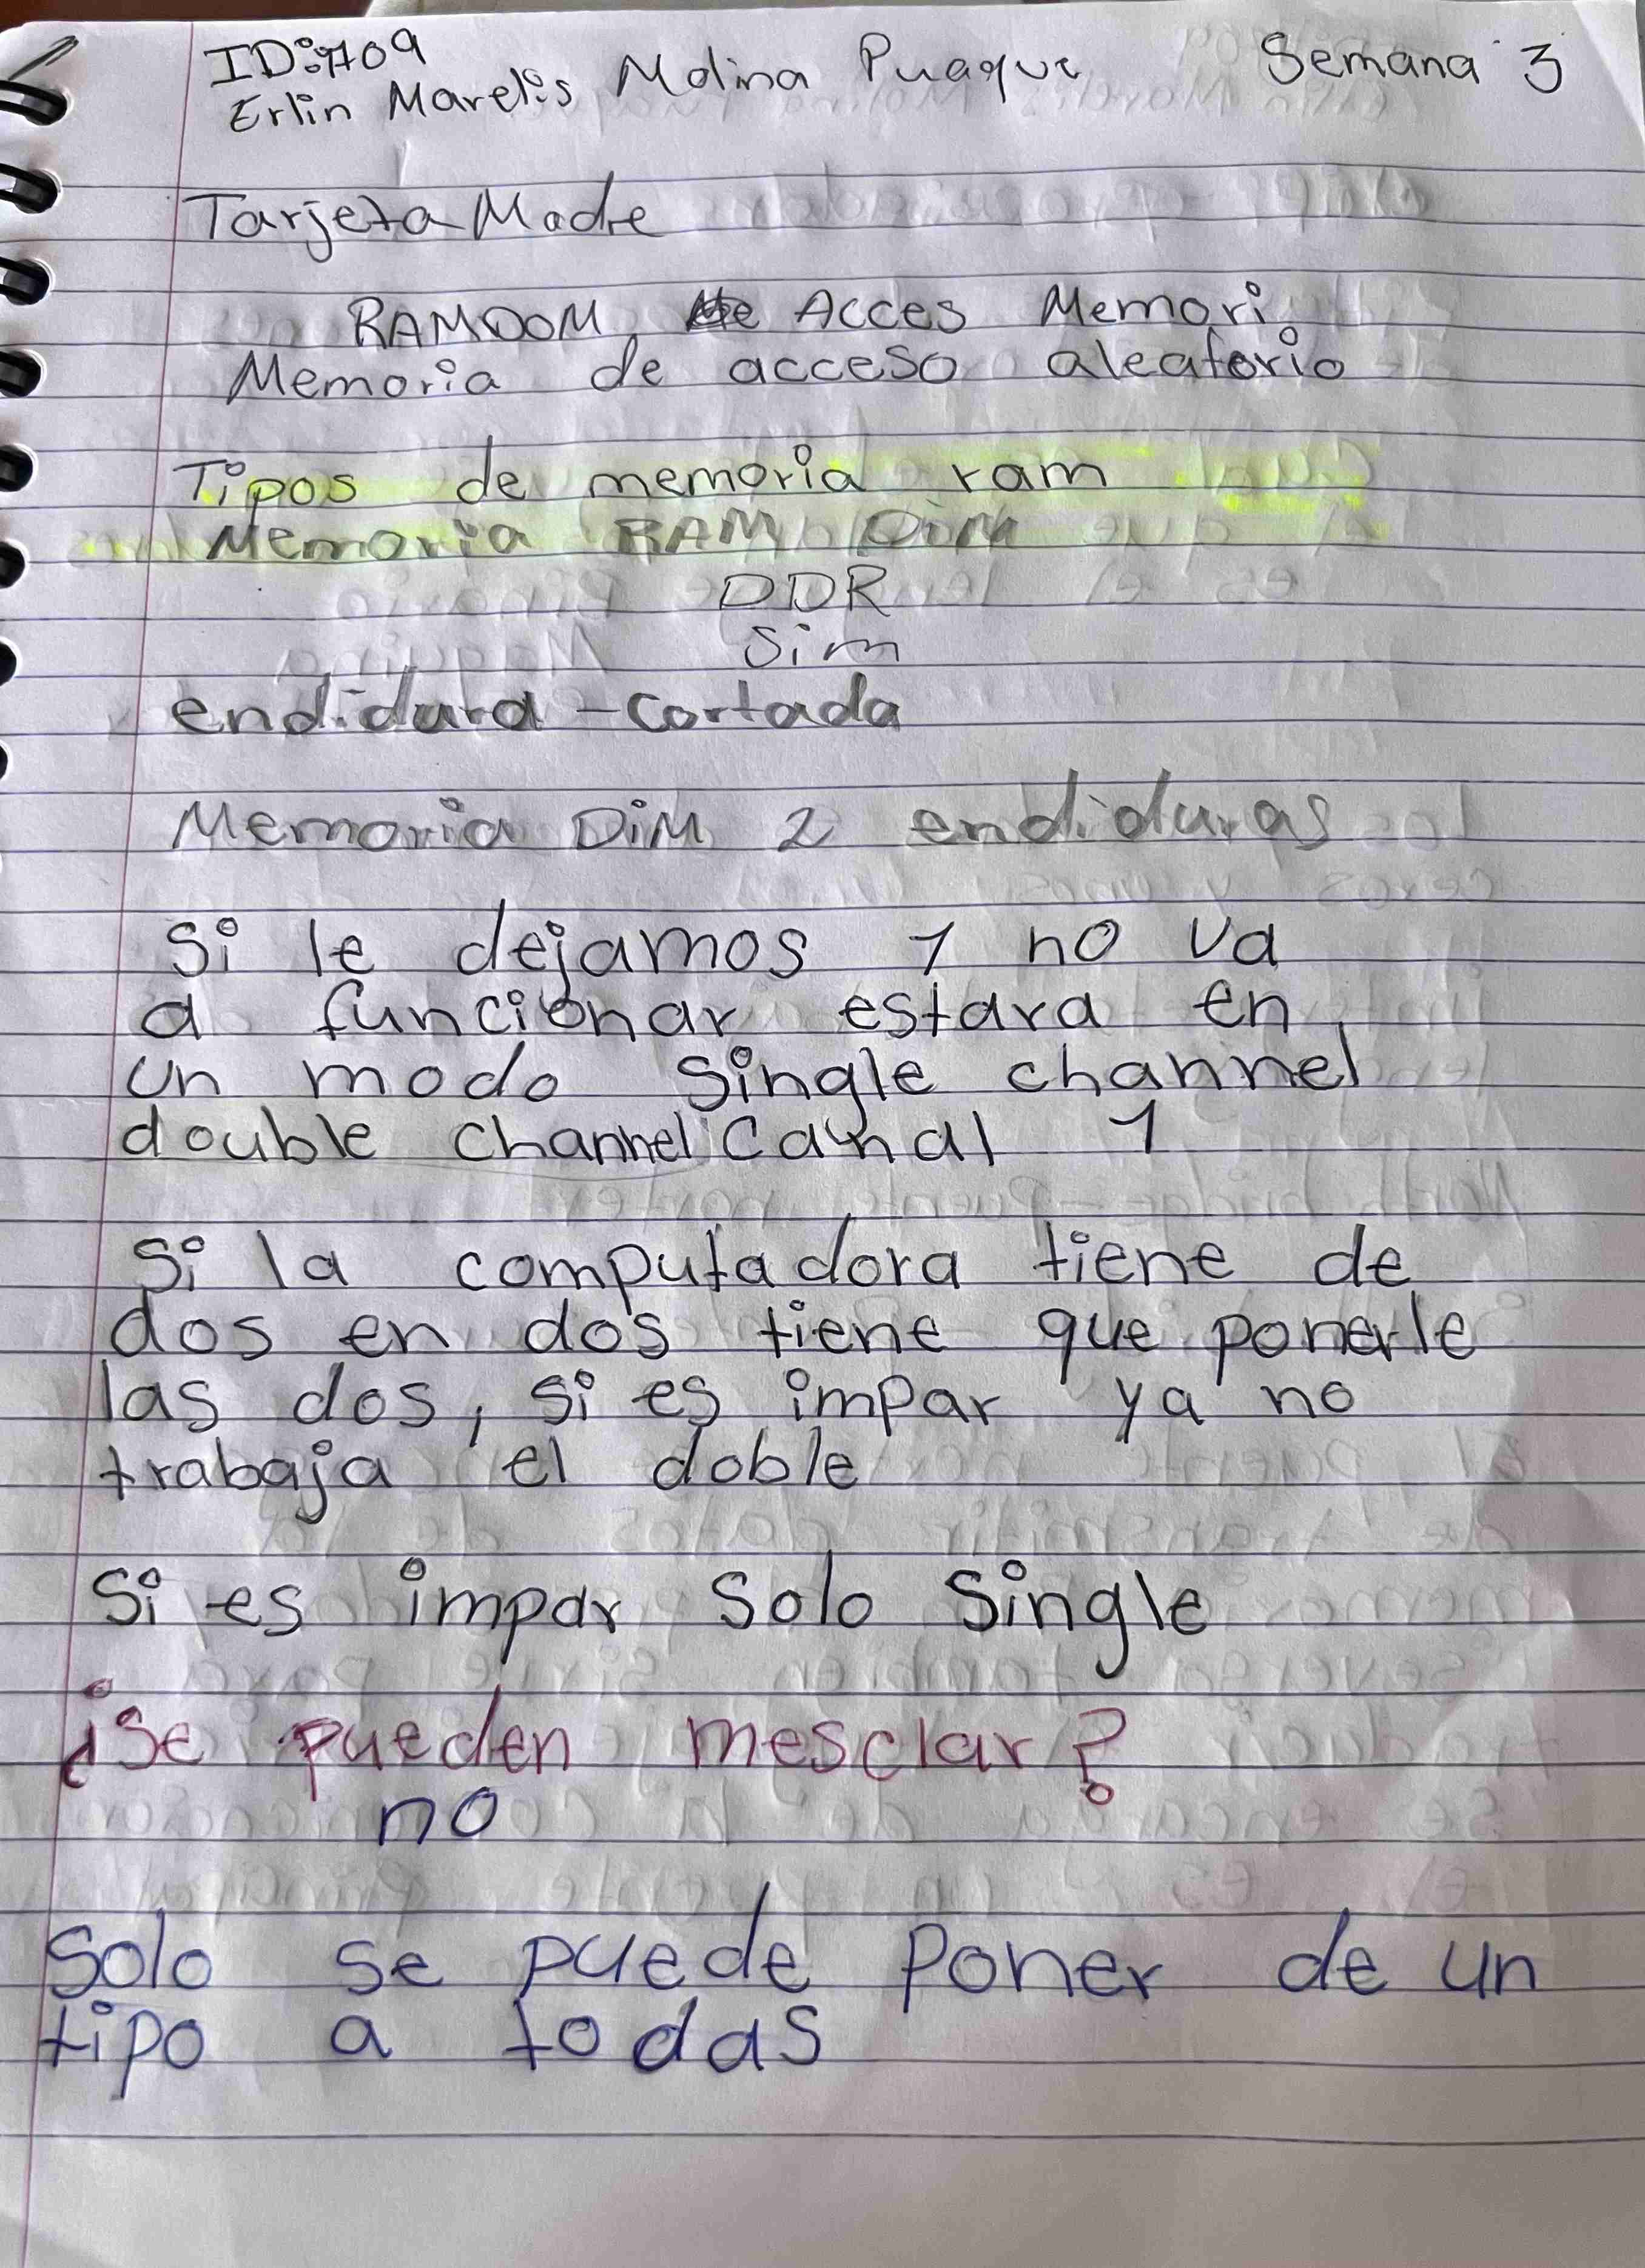 ID:#109
Erlin Marelis Molina Puaque Semana 3
Tarjeta Madre
RAMDOM Acces Memori
Memoria de acceso aleatorio
Tipos de memoria ram
Memoria RAM DiM
DDR
Sim
endidura - cortada
Memoria DiM 2 endiduras
Si le dejamos 1 no va
a funcionar estara en
un modo single channel
double channel Canal 1
Si la computadora tiene de
dos en dos tiene que ponerle
las dos, si es impar ya no
trabaja el doble
Si es impar Solo Single
¿Se pueden mesclar?
no
Solo se puede Poner de un
tipo a todas